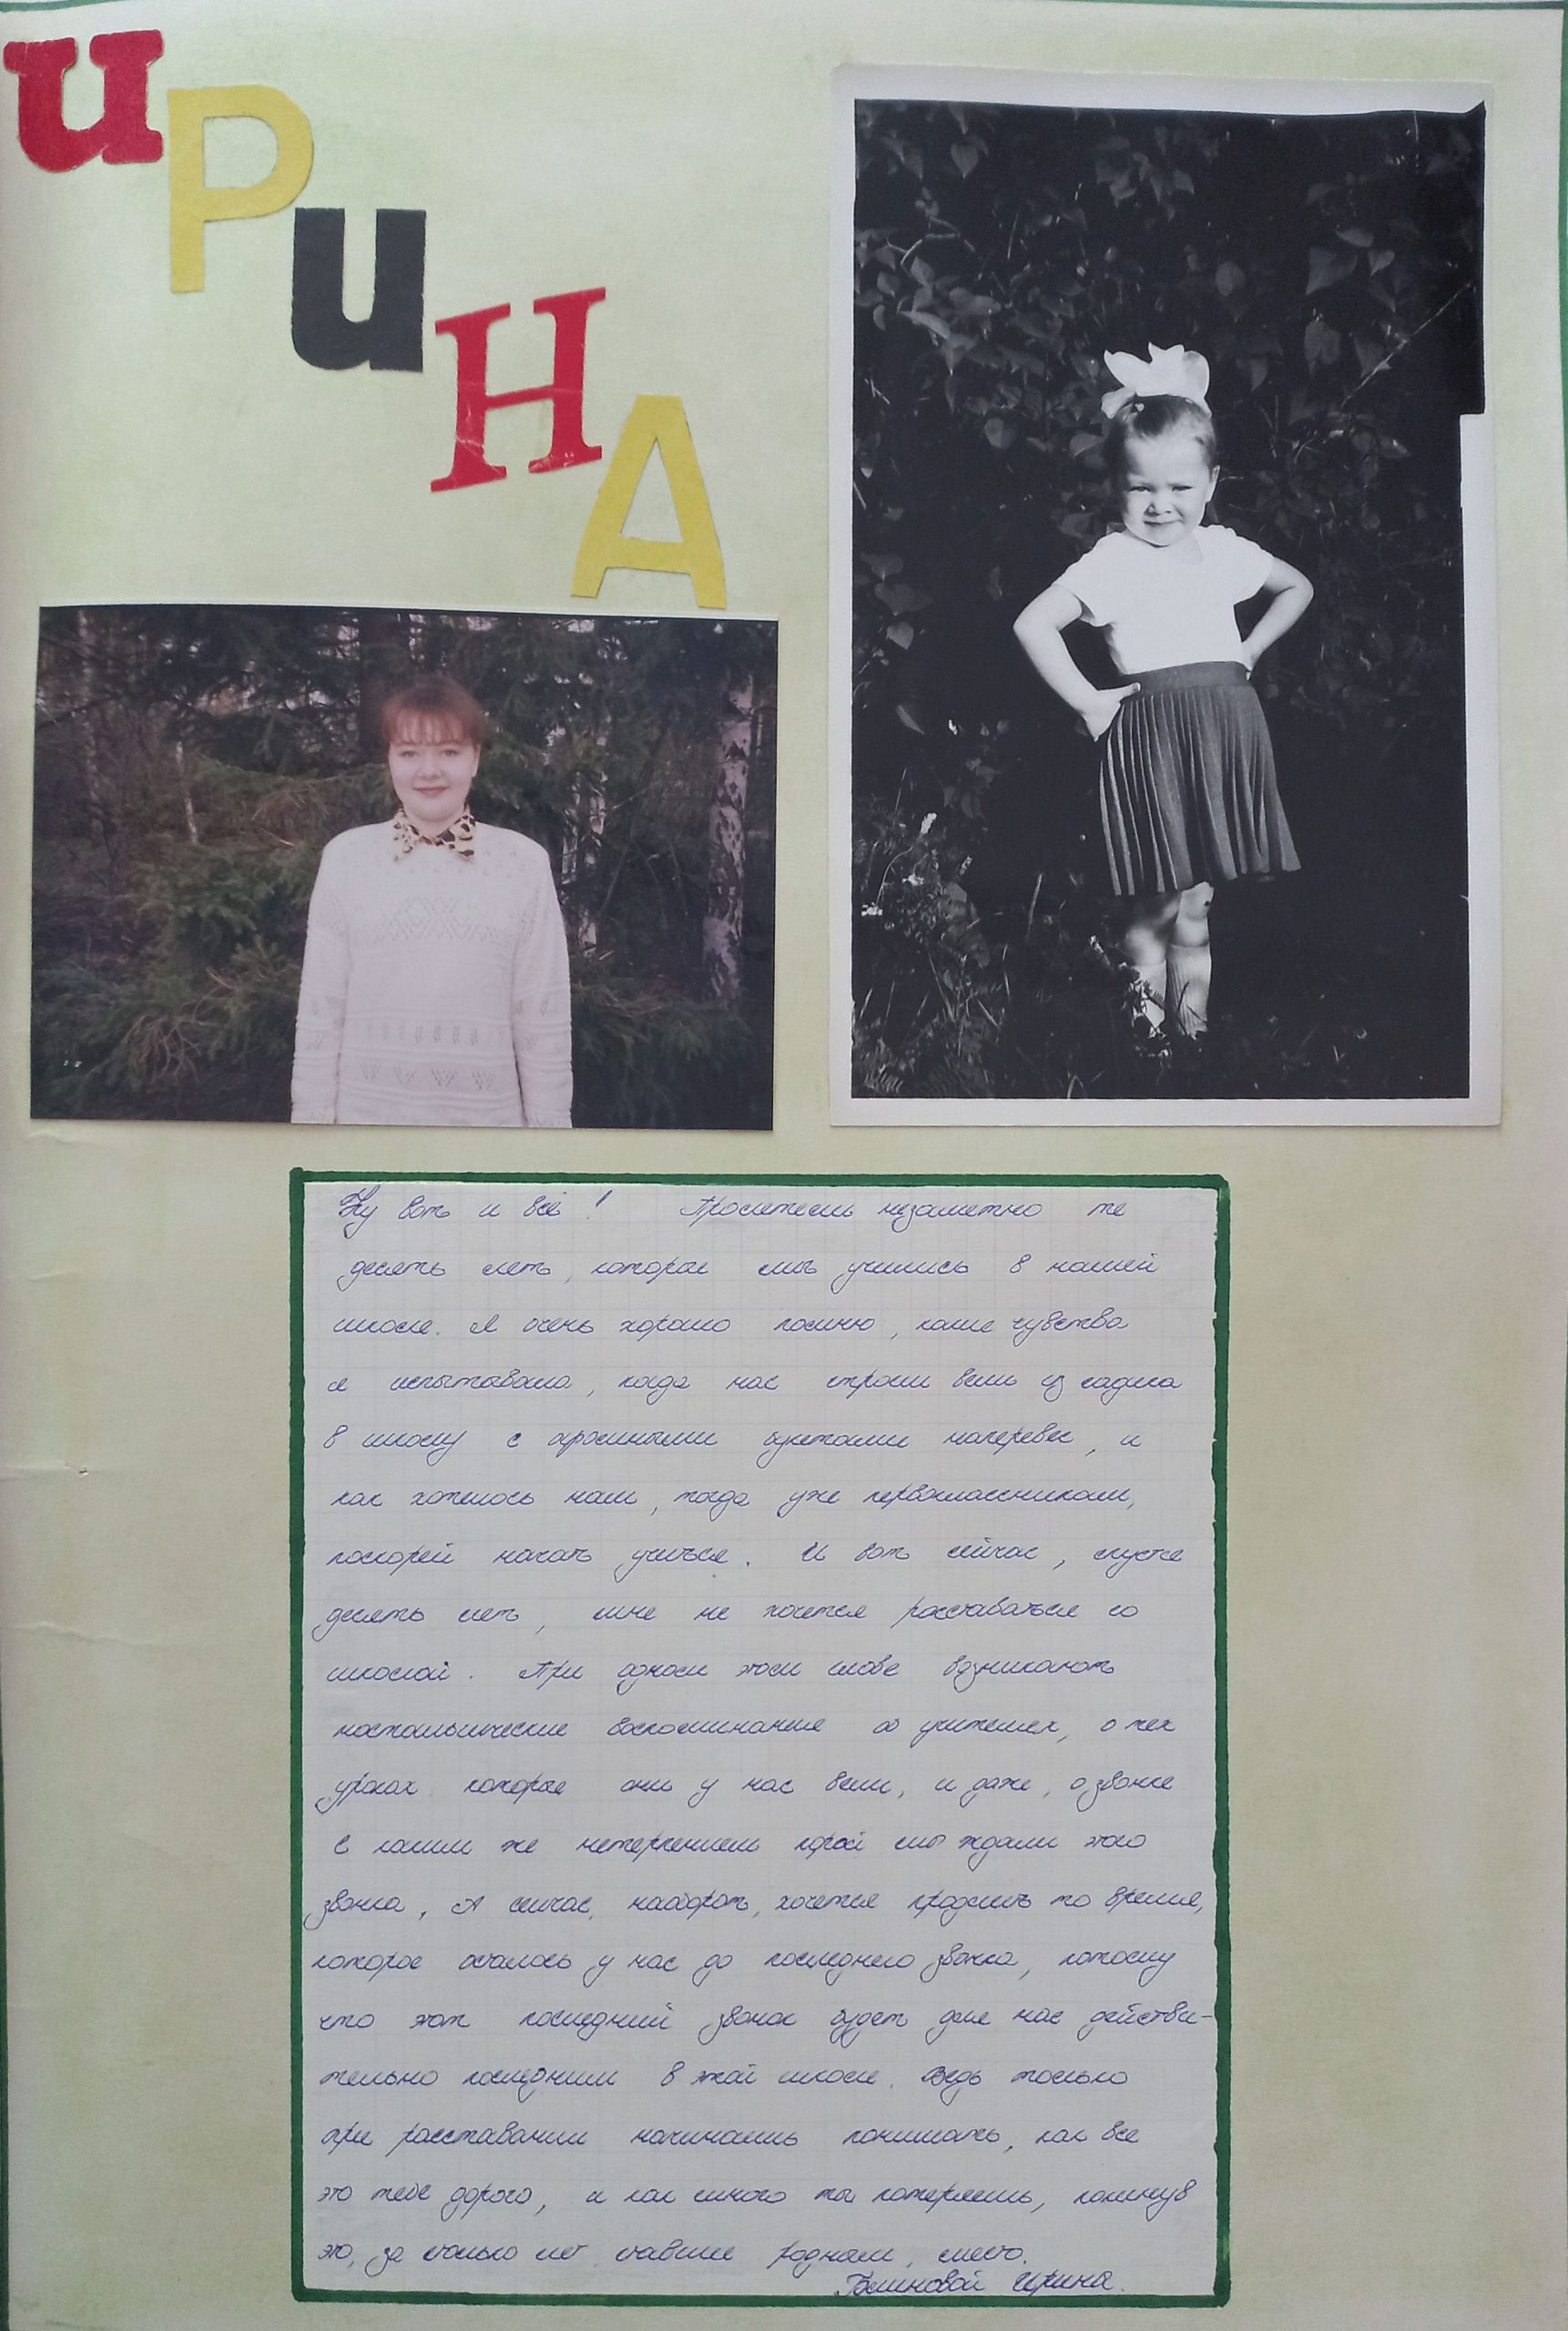 ИРИНА
Ну вот и всё! Пролетели незаметно те
десять лет, которые мы учились в нашей
школе. Я очень хорошо помню, какие чувства
я испытывала, когда нас строем вели из садика
в школу с огромными букетами наперевес, и
как хотелось нам, тогда уже первоклассникам,
поскорей начать учиться. И вот сейчас, спустя
десять лет, мне не хочется расставаться со
школой. При одном этом слове возникают
ностальгические воспоминания об учителях, о тех
уроках которые они у нас вели, и даже, о звонке
С каким же нетерпением порой мы ждали этого
звонка, А сейчас, наоборот, хочется продлить то время,
которое осталось у нас до последнего звонка, потому
что этот последний звонок будет для нас действи-
тельно последним в этой школе. Ведь только
при расставании начинаешь понимать, как все
это тебе дорого, и как много ты потеряешь, покинув
это, за столько лет ставшее родным, место.
Ирина